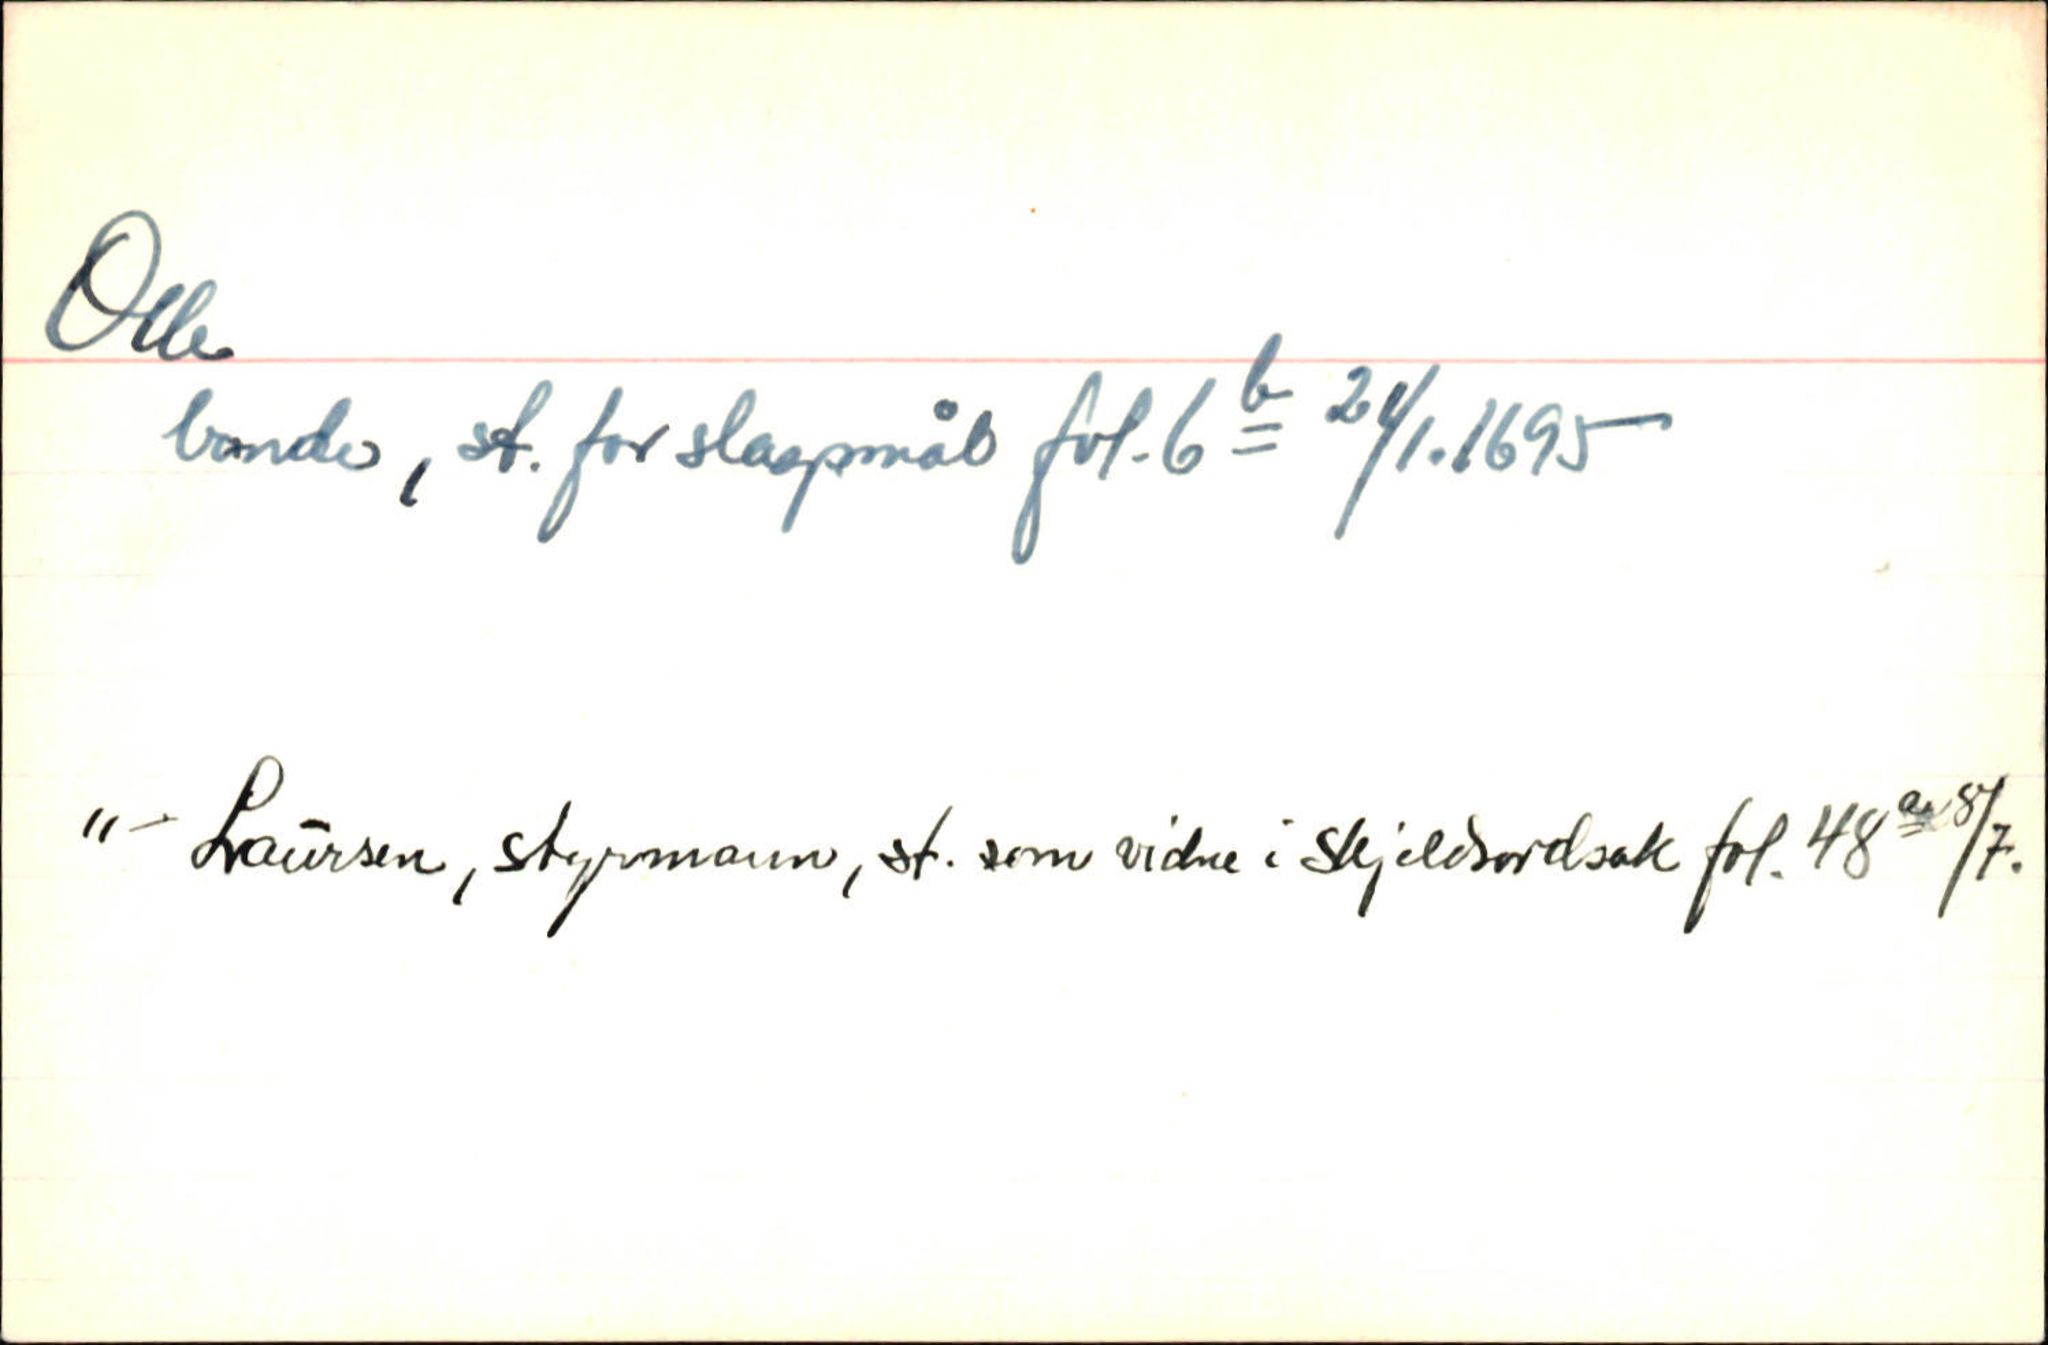 Olle
bonde, st. for slagsmål fol. 6 b 24/1. 1695
"- Laursen, styrmann, st. som vidne i skjeldsordsak fol. 48 a 8/7.